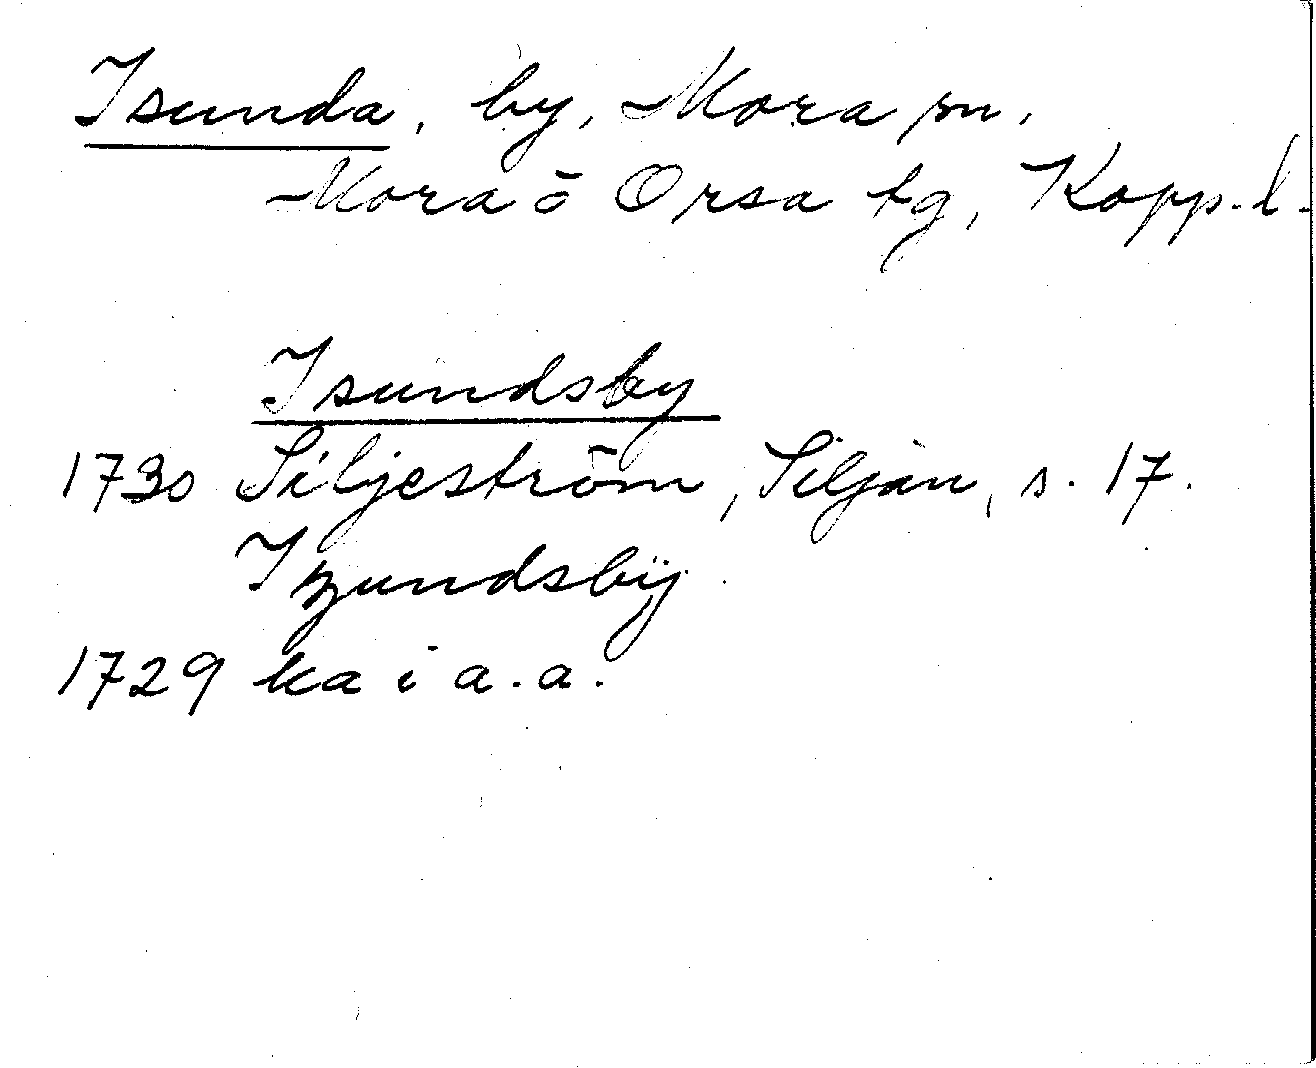 Isunda, by, Mora sn.
Mora ō Orsa tg, Kopp. l.
Isundsby
1730 Siljeström, Siljan, s. 17.
Izundsbÿ
1729 ka i a.a.